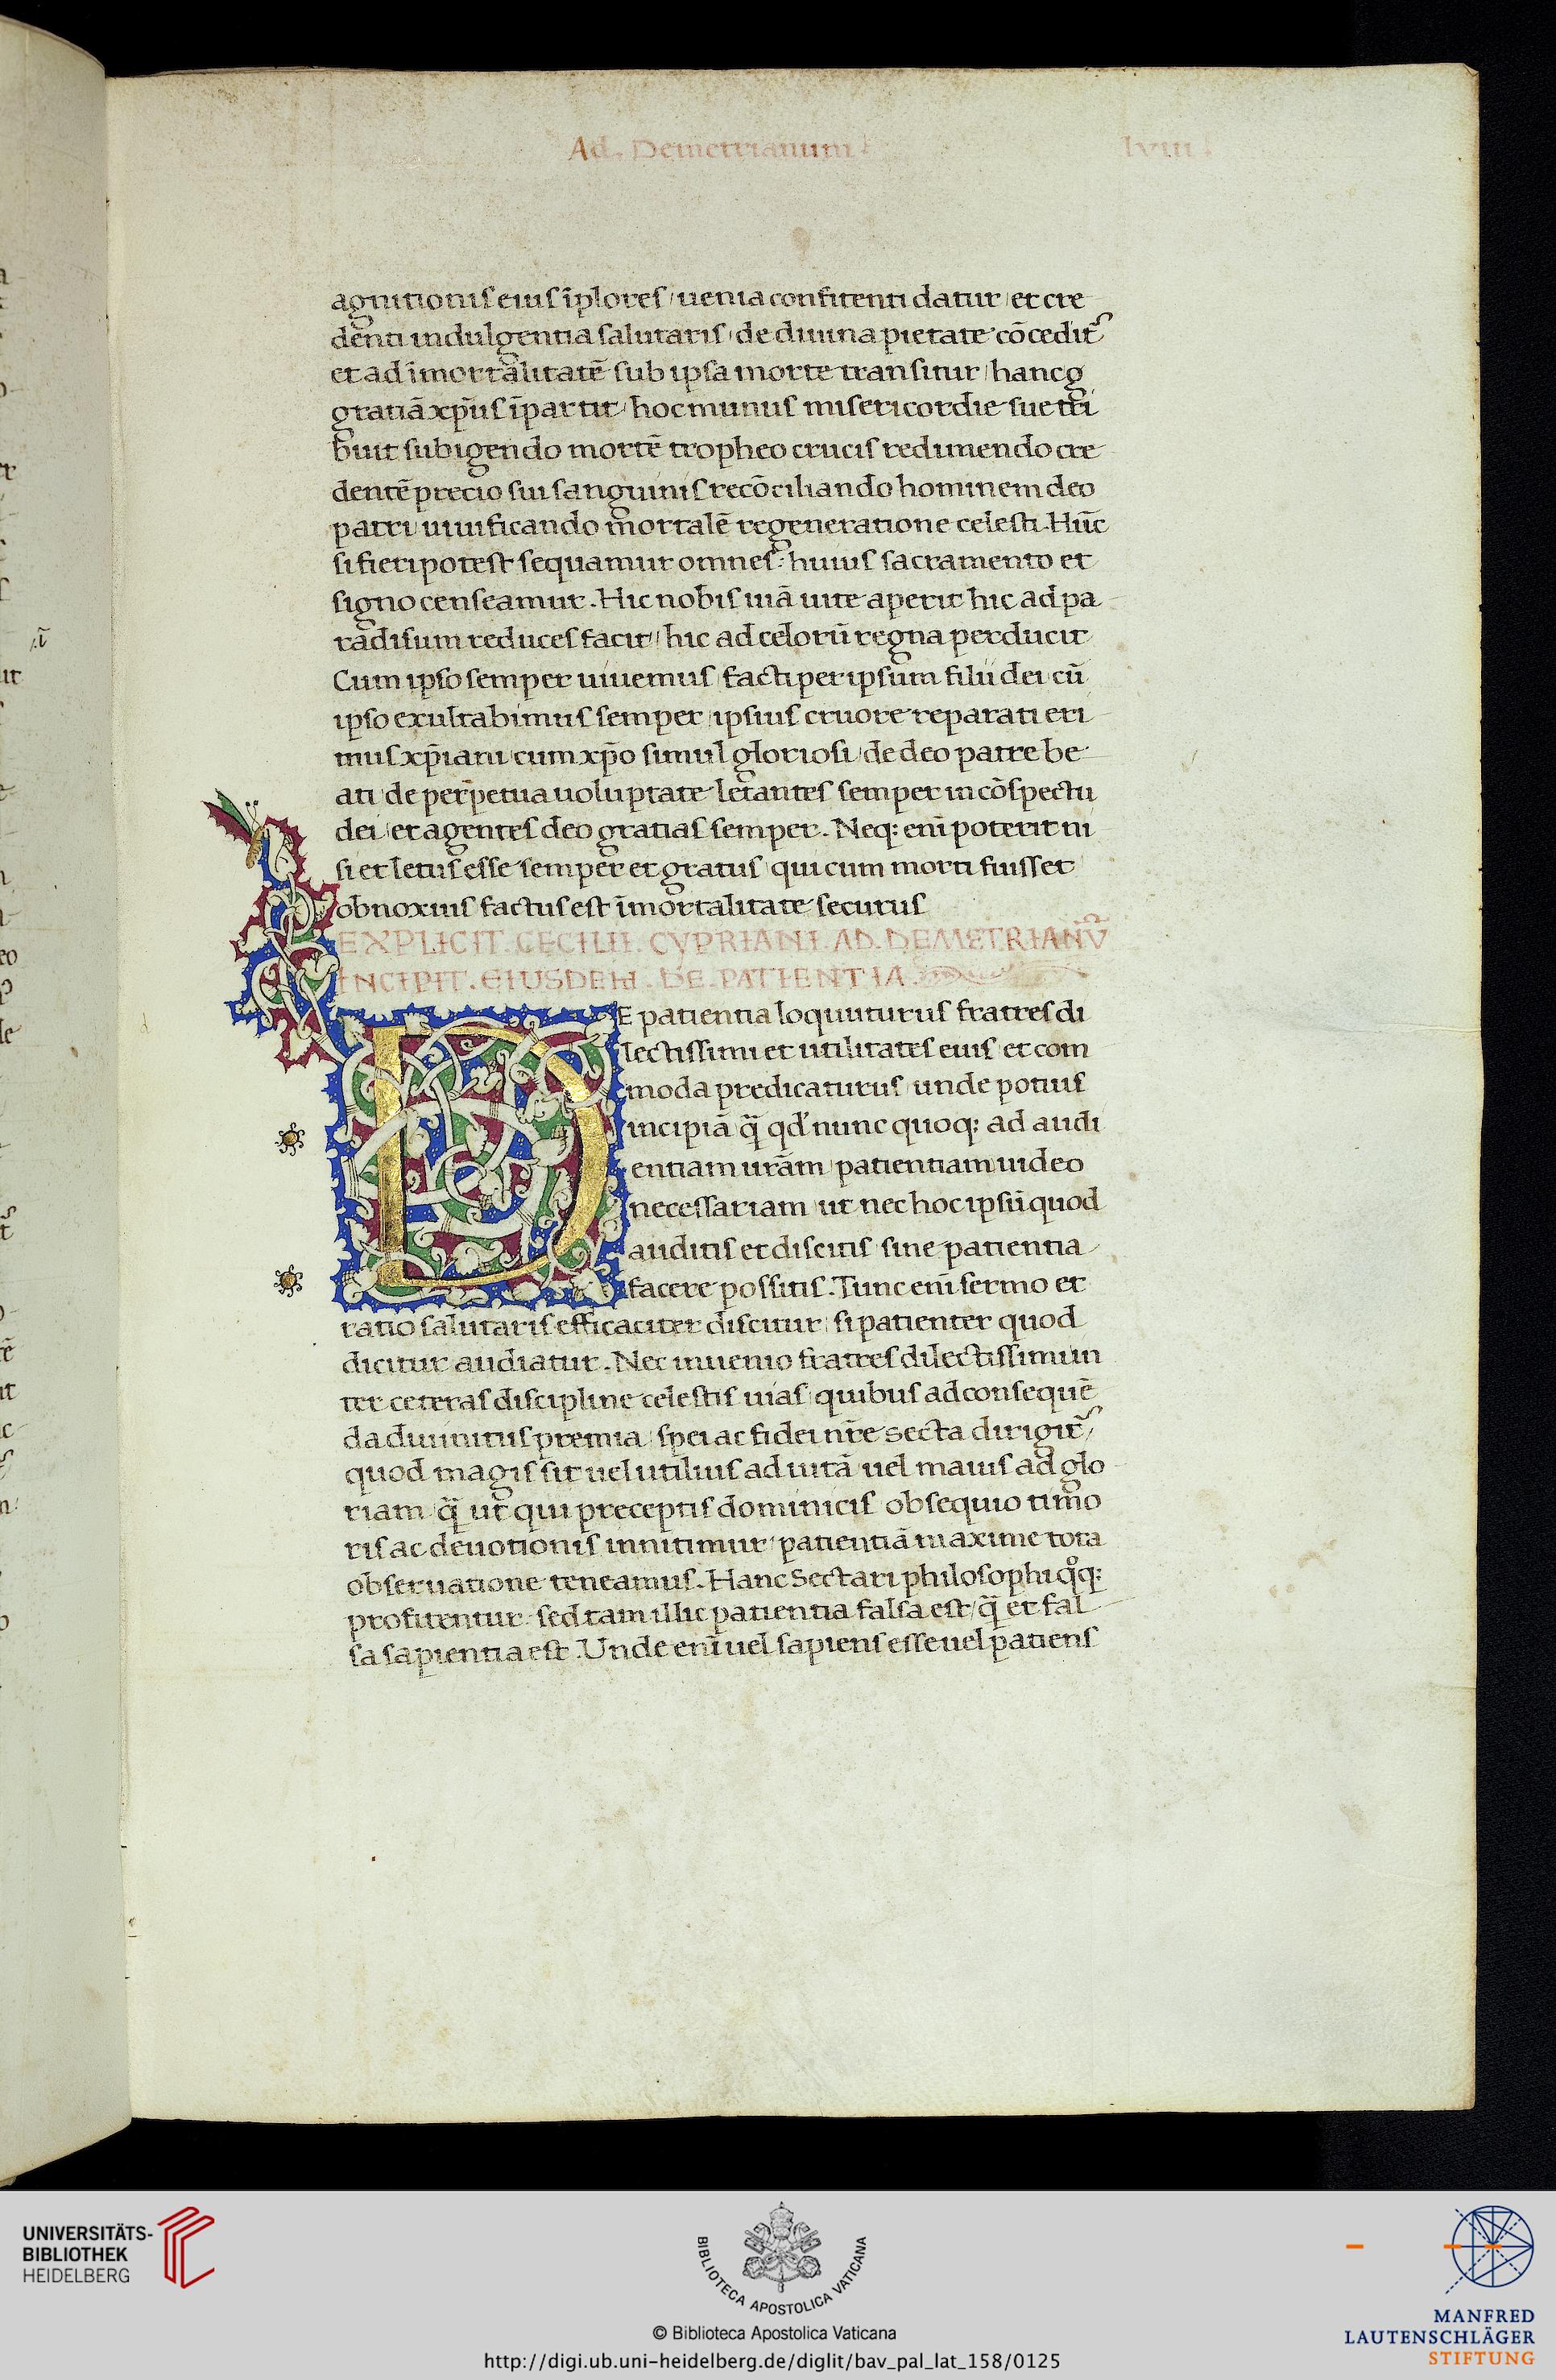 Ad. Demetrianum
lviii
agnitionis eius īplores / uenia confitenti datur / et cre
denti indulgentia salutaris / de diuina pietate cōcedit᷑
et ad īmortalitatē sub ipsa morte transitur / hanc g
gratiā xp̄us īpartit / hoc munus misericordie sue tri
buit subigendo mortē tropheo crucis redimendo cre
dentē precio sui sanguinis recōciliando hominem deo
patri uiuificando mortalē regeneratione celesti. Hūc
si fieri potest sequamur omnes: huius sacramento et
signo censeamur. Hic nobis uiā uite aperit hic ad pa
radisum reduces facit / hic ad celorū regna perducit
Cum ipso semper uiuemus / facti per ipsum filii dei cū
ipso exultabimus semper / ipsius cruore reparati eri
mus xp̄iani cum xp̄o simul gloriosi / de deo patre be
ati / de perpetua uoluptate letantes semper in cōspectu
dei / et agentes deo gratias semper. Neq; enī poterit ni
si et letus esse semper et gratus / qui cum morti fuisset
obnoxius factus est īmortalitate securus
EXPLICIT. CECILII. CYPRIANI. AD. DEMETRIANṼ
INCIPIT. EIUSDEM. DE. PATIENTIA.
DE patientia loquuturus fratres di
lectissimi et utilitates eius et com
moda predicaturus / unde potius
incipiā q̄ qd' nunc quoq; ad audi
entiam urām / patientiam uideo
necessariam / ut nec hoc ipsū quod
auditis et discitis / sine patientia
facere possitis. Tunc enī sermo et
ratio salutaris efficaciter discitur / si patienter quod
dicitur audiatur. Nec inuenio fratres dilectissimi in
ter ceteras discipline celestis uias / quibus ad consequē
da diuinitus premia / spei ac fidei nr̄e secta dirigit᷑ /
quod magis sit uel utilius ad uitā uel maius ad glo
riam / q̄ ut qui preceptis dominicis obsequio timo
ris ac deuotionis innitimur / patientiā maxime tota
obseruatione teneamus. Hanc sectari philosophi qͦq;
profitentur / sed tam illic patientia falsa est / q̄ et fal
sa sapientia est. Unde enī uel sapiens esse uel patiens
UNIVERSITÄTS-
BIBLIOTHEK
HEIDELBERG
BIBLIOTECA APOSTOLICA VATICANA
© Biblioteca Apostolica Vaticana
http://digi.ub.uni-heidelberg.de/diglit/bav_pal_lat_158/0125
MANFRED
LAUTENSCHLÄGER
STIFTUNG